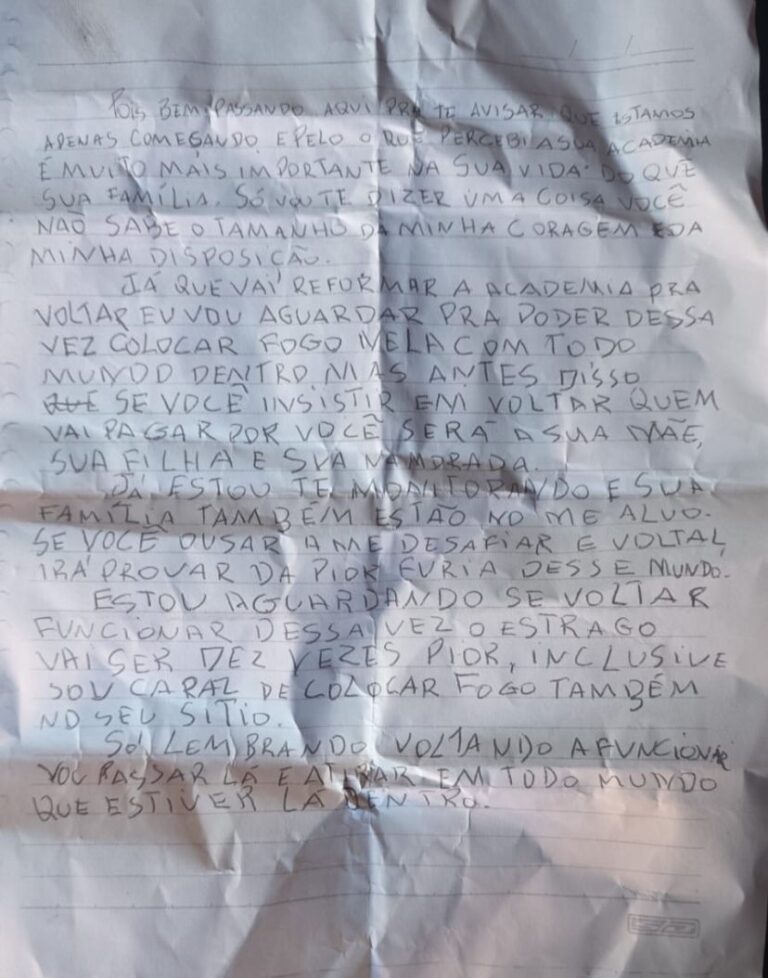 POIS BEM, PASSANDO AQUI PRA TE AVISAR QUE ESTAMOS
APENAS COMEÇANDO E PELO O QUE PERCEBI A SUA ACADEMIA
É MUITO MAIS IMPORTANTE NA SUA VIDA DO QUE
SUA FAMÍLIA. SÓ VOU TE DIZER UMA COISA VOCÊ
NÃO SABE O TAMANHO DA MINHA CORAGEM E DA
MINHA DISPOSIÇÃO.
JÁ QUE VAI REFORMAR A ACADEMIA PRA
VOLTAR EU VOU AGUARDAR PRA PODER DESSA
VEZ COLOCAR FOGO NELA COM TODO
MUNDO DENTRO MAS ANTES DISSO
QUE SE VOCÊ INSISTIR EM VOLTAR QUEM
VAI PAGAR POR VOCÊ SERÁ A SUA MÃE,
SUA FILHA E SUA NAMORADA.
JÁ ESTOU TE MONITORANDO E SUA
FAMÍLIA TAMBÉM ESTÃO NO ME ALVO.
SE VOCÊ OUSAR A ME DESAFIAR E VOLTAR,
IRÁ PROVAR DA PIOR FURIA DESSE MUNDO.
ESTOU AGUARDANDO SE VOLTAR
FUNCIONAR DESSA VEZ O ESTRAGO
VAI SER DEZ VEZES PIOR, INCLUSIVE
SOU CAPAZ DE COLOCAR FOGO TAMBÉM
NO SEU SITIO.
SÓ LEMBRANDO VOLTANDO A FUNCIONAR
VOU PASSAR LÁ E ATIRAR EM TODO MUNDO
QUE ESTIVER LÁ DENTRO.